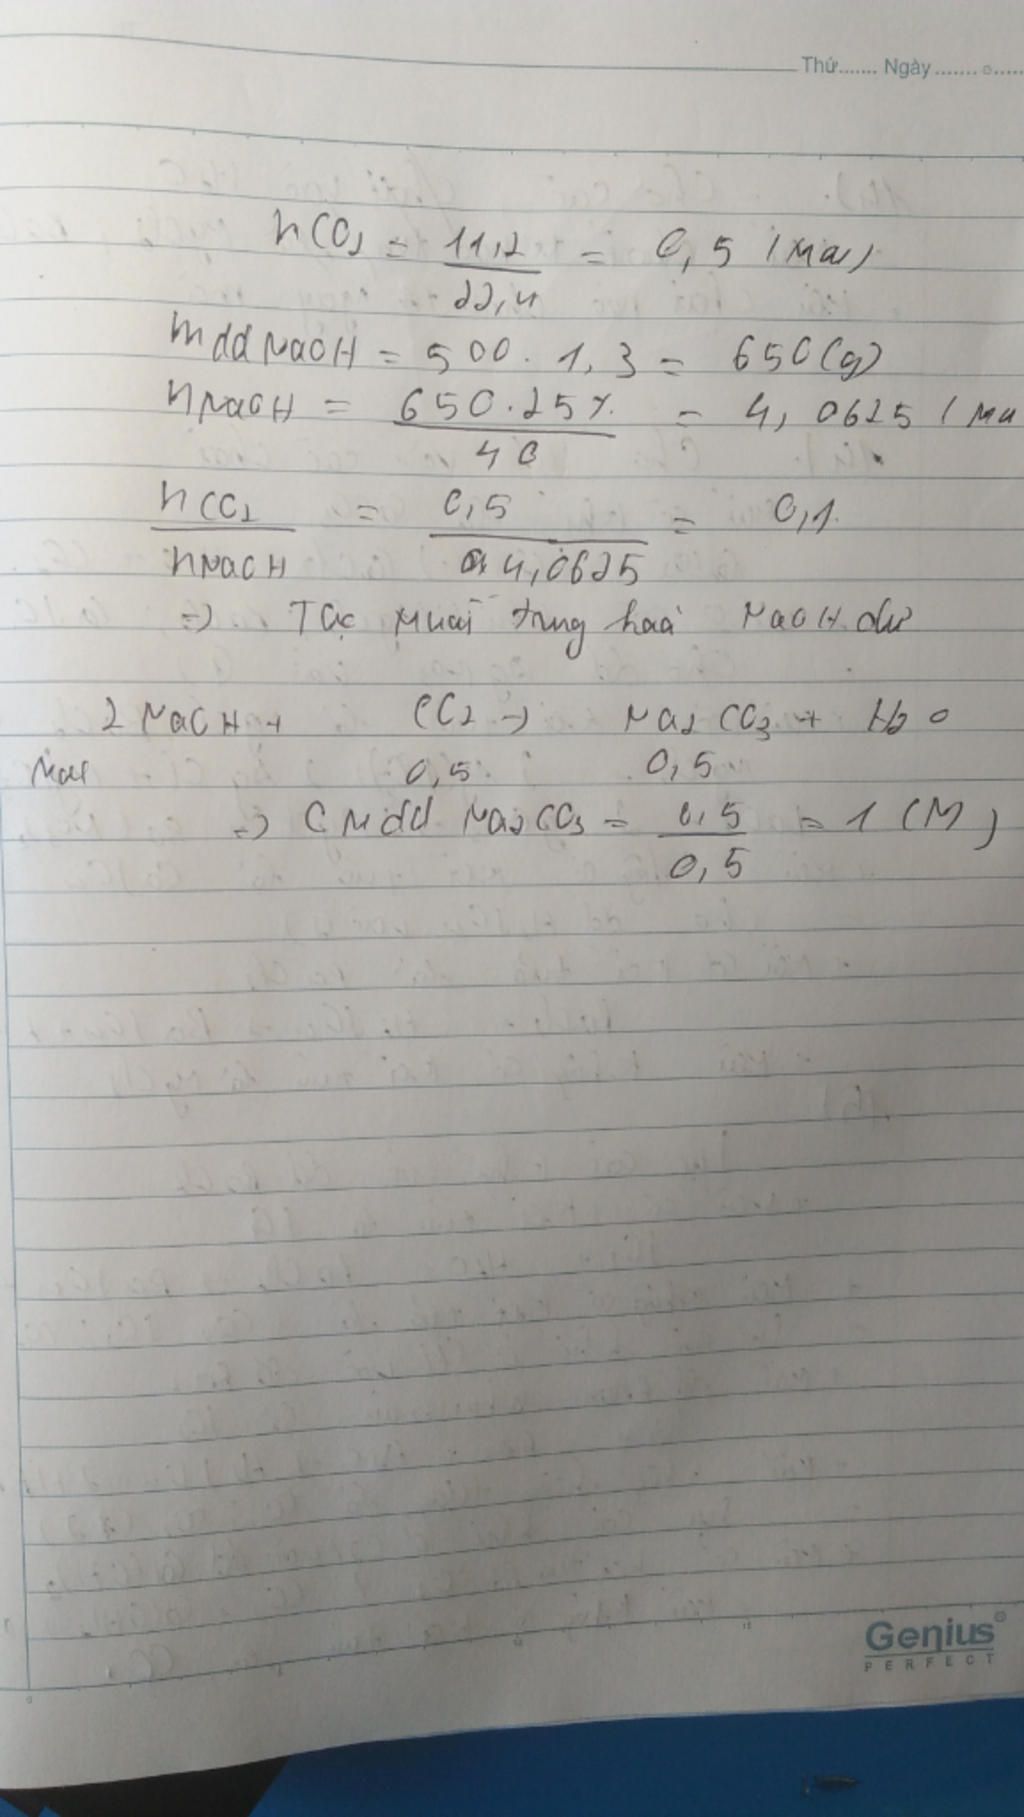 Thứ....... Ngày.......
nCO2 = 11,2 / 22,4 = 0,5 (mol)
mdd NaOH = 500 . 1,3 = 650 (g)
nNaOH = 650.25% / 40 = 4,0625 (mo
nCO2 / nNaOH = 0,5 / 4,0625 = 0,1
=> Tạc muối trung hoà NaOH dư
2 NaOH + CO2 -> Na2CO3 + H2O
Mol 0,5 0,5
=> CM dd Na2CO3 = 0,5 / 0,5 = 1 (M)
Genius
PERFECT